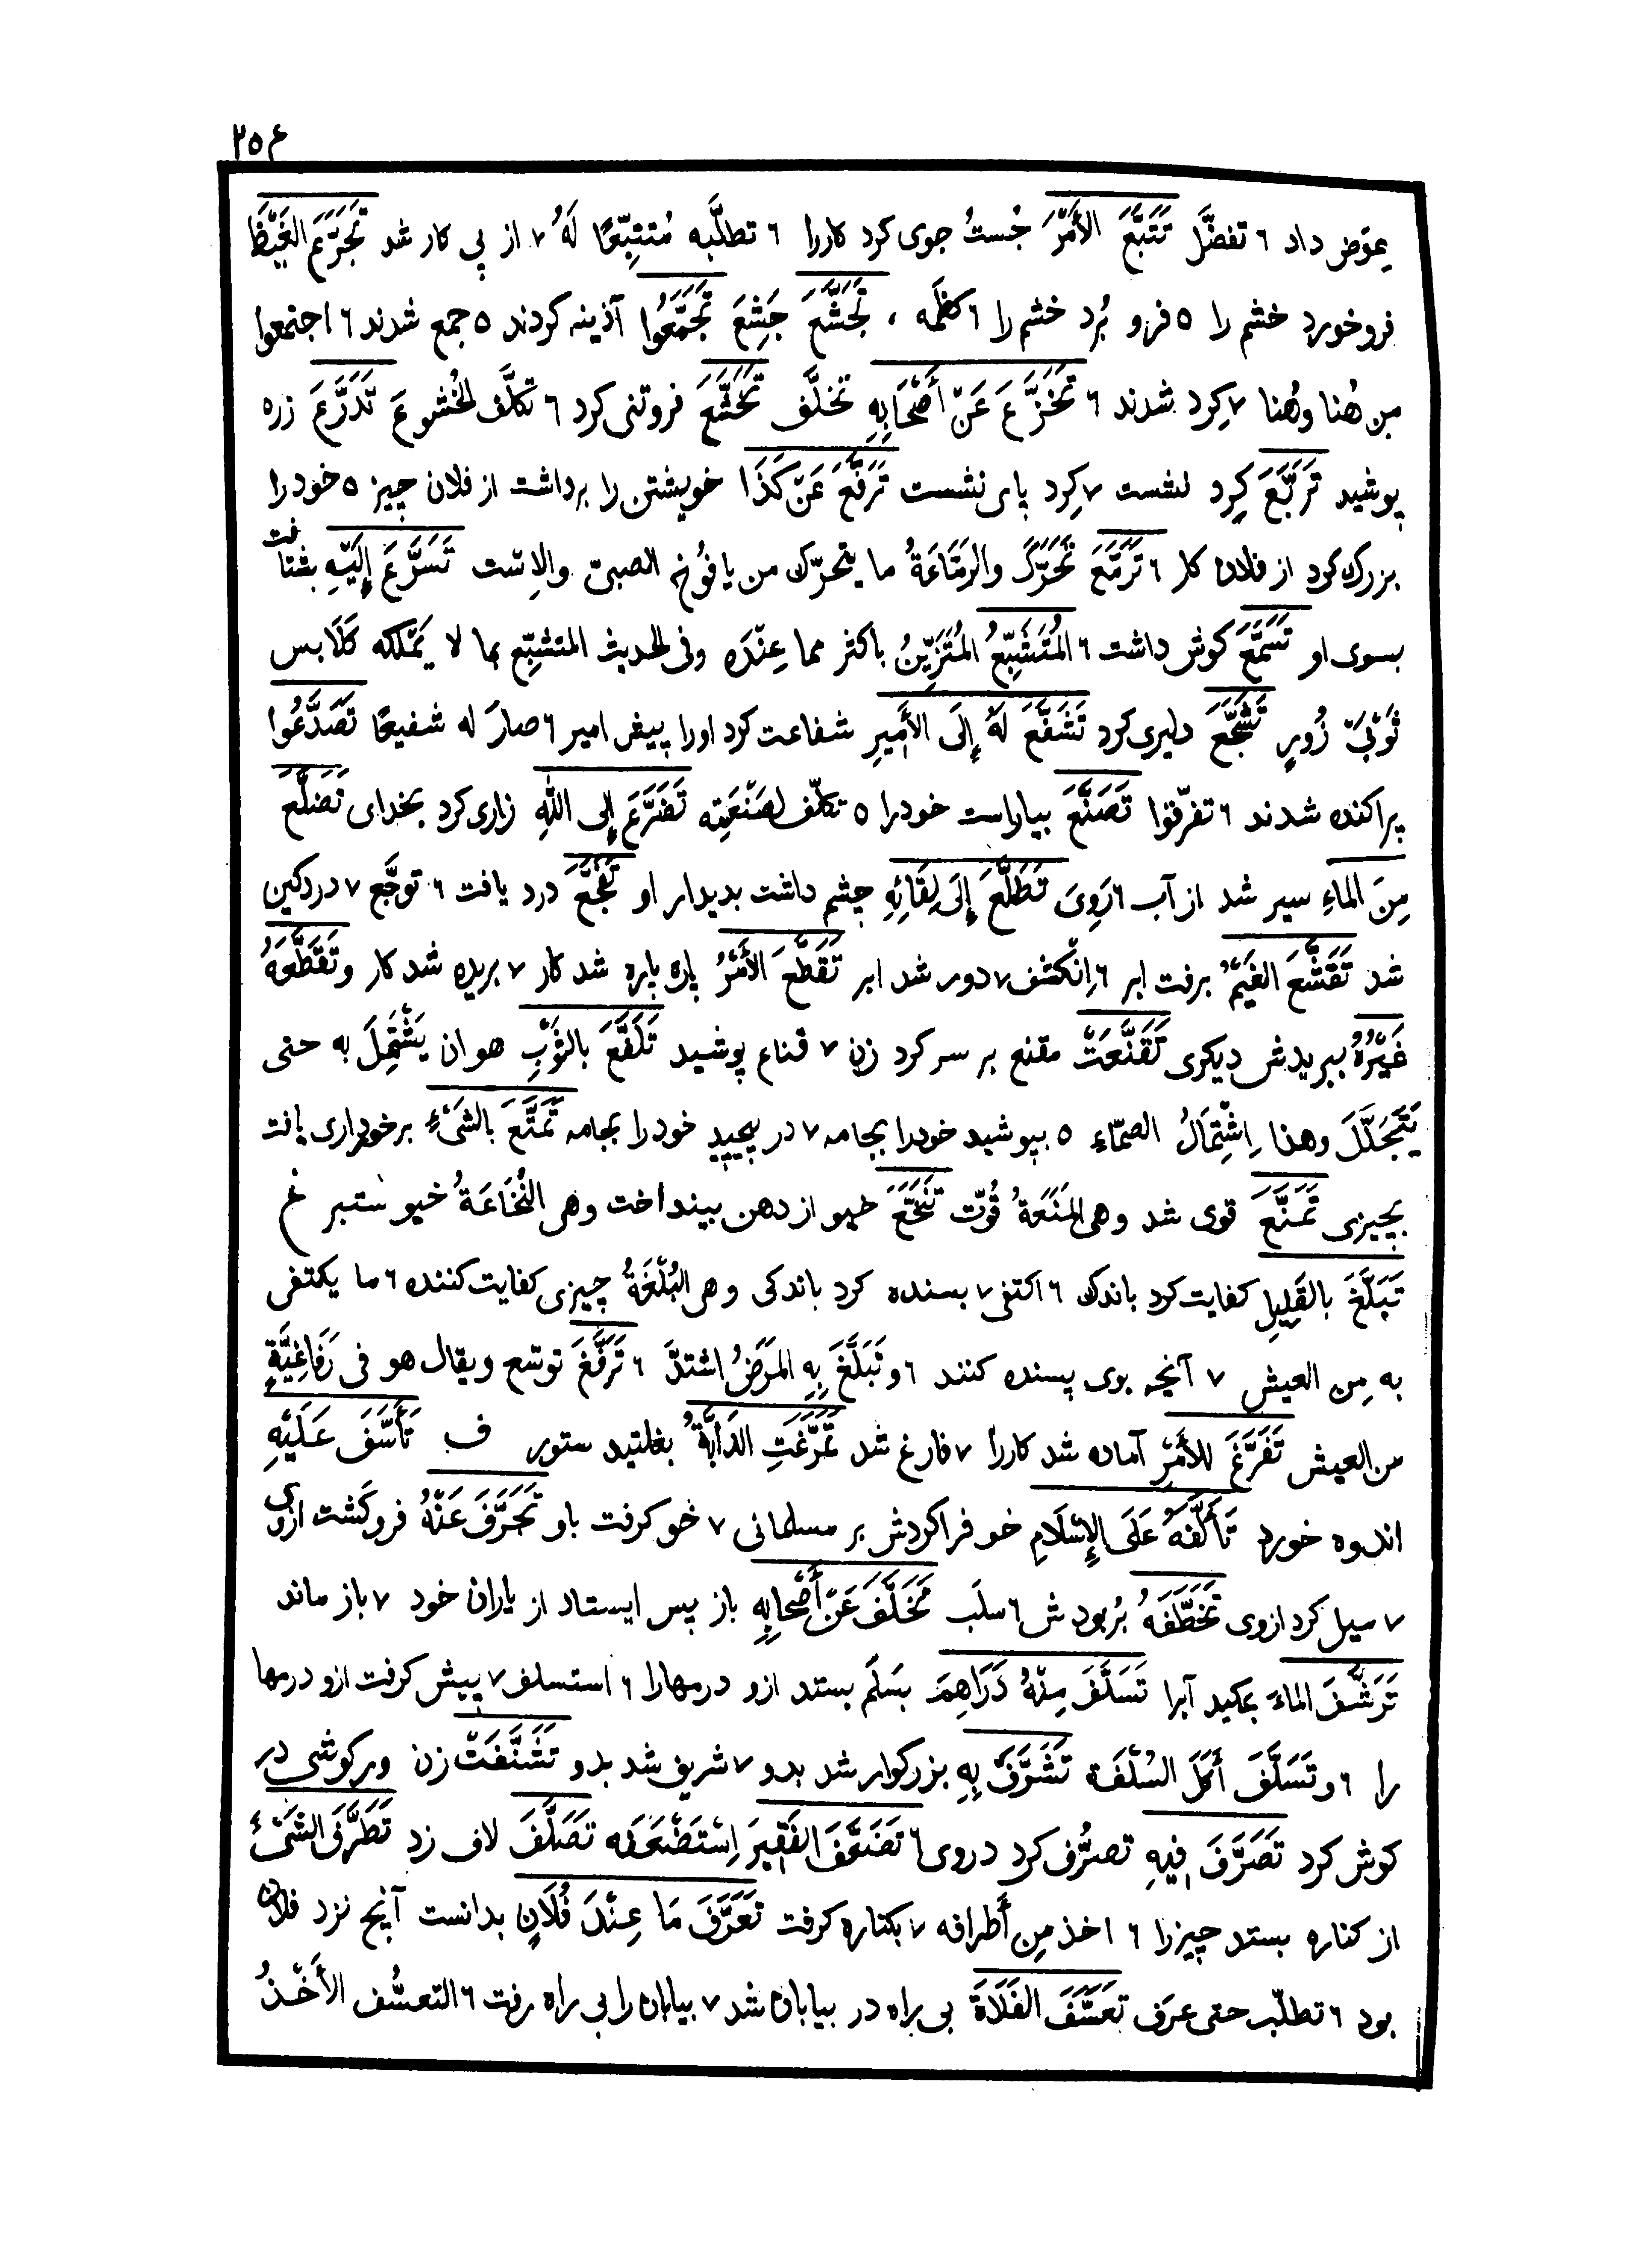 ۲۵۶
بعوض داد ٦ تفضَّل تَتَبَّعَ الأَمْرَ جُستُ جوی کرد کاررا ٦ تطلَّبه مُتتبِّعًا لَهُ ٧ از پی کار شد تَجَرَّعَ الغَيْظَ
فروخورد خشم را ٥ فرو بُرد خشم را ٦ كظمَه ، تَجَشَّعَ جَشِعَ تَجَمَّعُوا آذینه کردند ٥ جمع شدند ٦ اجتمعوا
من هُنا وهُنا ٧ کِرد شدند ٦ تَخَزَّعَ عَنْ أَصْحَابِهِ تخلَّف تَخَشَّعَ فروتنی کرد ٦ تكلَّف الخُشوعَ تَدَرَّعَ زره
پوشید تَرَبَّعَ کِرد نشست ٧ کِرد پای نشست تَرَفَّعَ عَنْ كَذَا خویشتن را برداشت از فلان چیز ٥ خود را
بزرک کرد از فلان کار ٦ تَرَمَّعَ تَحَرَّكَ والرَمَّاعَةُ ما يتحرّك من يافُوخ الصبىّ والاِست تَسَرَّعَ إِلَيْهِ بشتافت
بسوی او تَسَمَّعَ کوش داشت ٦ المُتَشَبِّعُ المُتَزَيِّنُ باكثر مما عِنْدَه وفى الحديث المتشبّع بما لا يَمْلكه كَلَابس
ثَوْبَىْ زُورٍ تَشَجَّعَ دلیری کرد تَشَفَّعَ لَهُ إِلَى الأَمِيرِ شفاعت کرد اورا پیش امیر ٦ صارَ له شفيعًا تَصَدَّعُوا
پراکنده شدند ٦ تفرّقوا تَصَنَّعَ بیاراست خودرا ٥ تكلّف لصَنْعَتِه تَضَرَّعَ إِلى اللهِ زاری کرد بخدای تَضَلَّعَ
مِنَ الماءِ سیر شد از آب ٦ رَوِىَ تَطَلَّعَ إِلَى لِقَائِهِ چشم داشت بدیدار او تَفَجَّعَ درد یافت ٦ توجَّع ٧ دردکین
شد تَقَشَّعَ الغَيْمُ برفت ابر ٦ اِنْكشف ٧ دور شد ابر تَقَطَّعَ الأَمْرُ پاره پاره شد کار ٧ بریده شد کار وتَقَطَّعَهُ
غَيْرُهُ ببریدش دیکری تَقَنَّعَتْ مقنع بر سر کرد زن ٧ قناع پوشید تَلَفَّعَ بالثَوْبِ هو ان يَشْتَمِلَ به حتى
يَتَجَلَّلَ وهذا اِشْتِمَالُ الصمّاء ٥ بپوشید خودرا بجامه ٧ در پیچید خود را بجامه تَمَتَّعَ بالشَىْءِ برخورداری یافت
بچیزی تَمَنَّعَ قوی شد وهى المَنَعَةُ قُوّت تَنَخَّعَ خیو از دهن بینداخت وهى النُخَاعَةُ خیو ستبر غ
تَبَلَّغَ بالقَلِيلِ کفایت کرد باندک ٦ اكتفى ٧ بسنده کرد باندکی وهى البُلْغَةُ چیزی کفایت کننده ٦ ما يكتفى
به مِن العيش ٧ آنچه بوی پسنده کنند ٦ وتَبَلَّغَ بِهِ المَرَضُ اشتدَّ ٦ تَرَفَّغَ توسّع ويقال هو فى رَفَاغِيَّةٍ
من العيش تَفَرَّغَ لِلأَمْرِ آماده شد کاررا ٧ فارغ شد تَمَرَّغَتِ الدَابَّةُ بغلتید ستور ف تَأَسَّفَ عَلَيْهِ
اندوه خورد تَأَلَّفَهُ عَلَى الإِسْلَامِ خو فراکردش بر مسلمانی ٧ خو کرفت باو تَحَرَّفَ عَنْهُ فروکشت ازوی
٧ میل کرد ازوی تَخَطَّفَهُ بُربودش ٦ سلَب تَخَلَّفَ عَنْ أَصْحَابِهِ باز پس ایستاد از یاران خود ٧ باز ماند
تَرَشَّفَ الماءَ بمکید آبرا تَسَلَّفَ مِنْهُ دَرَاهِمَ بسَلَم بستد ازو درمهارا ٦ استسلف ٧ پیش کرفت ازو درمها
را ٦ وتَسَلَّفَ أَكَلَ السُلْفَة تَشَرَّفَ بِهِ بزرکوار شد بدو ٧ شریف شد بدو تَشَنَّفَتْ زن ورکوشی در
کوش کرد تَصَرَّفَ فِيهِ تصرُّف کرد دروی ٦ تَضَعَّفَ الفَقِيرَ اِسْتَضْعَفه تَصَلَّفَ لاف زد تَطَرَّفَ الشَىْءَ
از کناره بستد چیزرا ٦ اخذ مِن أَطرافه ٧ بکناره کرفت تَعَرَّفَ مَا عِنْدَ فُلَانٍ بدانست آنچ نزد فلان
بود ٦ تطلّب حتى عرَف تَعَسَّفَ الفَلَاةَ بی راه در بیابان شد ٧ بیابان را بی راه رفت ٦ التعسُّف الأَخْذُ